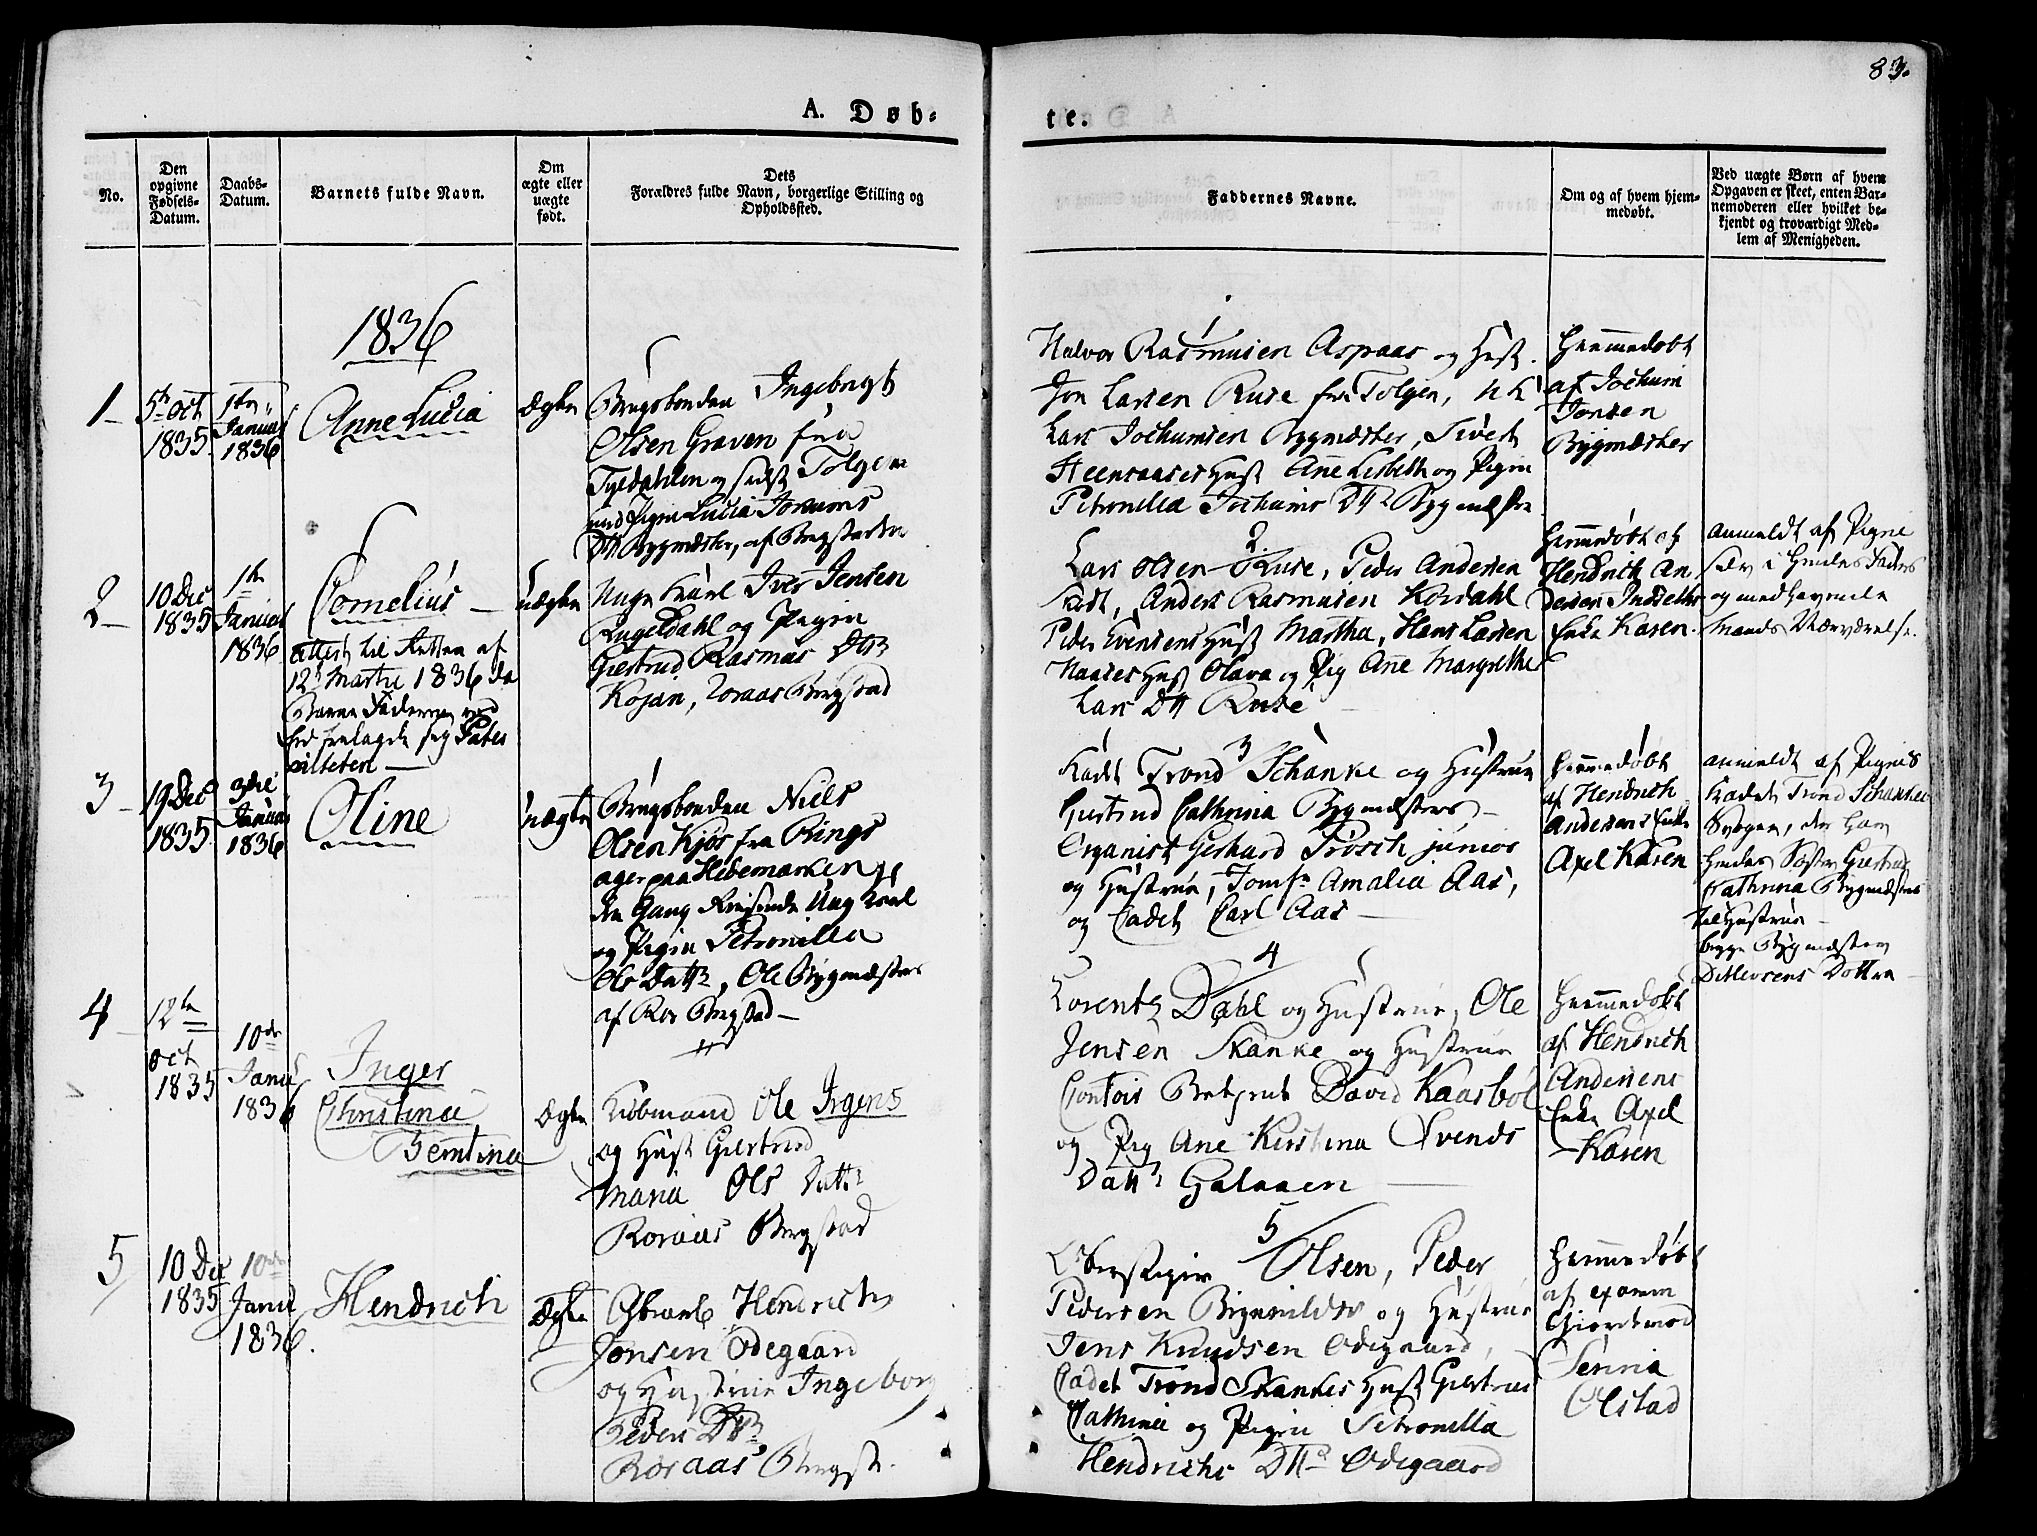 83.
A. Døb-
te.
No.
Den
opgivne
Fødsels-
Datum.
Daabs-
Datum.
Barnets fulde Navn.
Om
ægte eller
uægte
født.
Dets
Forældres fulde Navn, borgerlige Stilling og
Opholdssted.
Faddernes Navne.
Om og af hvem hjem-
medøbt.
Ved uægte Børn af hvem
Opgaven er skeet, enten Bar-
nemoderen eller hvilket be-
kjendt og troværdigt Med-
lem af Menigheden.
1836
1
5te oct
1835
1ste
Januar
1836
Anne Lucia
Ægte
Brugsbonden Ingebrigt
Olsen Graven fra
Tydahlen og sidst Tolgen
med Pigen Lucia Jocums
Dtt Bygmester, af Bergstaden
1
Halvor Rasmusen Aspaas og Hust.
Jon Larsen Ruse fra Tolgen,
Lars Jochumsen Bygmester, Sivert
Heensaases Hust Ane Lisbeth og Pigen
Petronella Jochums Dtr Bygmester
Hiemmedøbt
af Jochum
Jonsen
Bygmester
2
10 Dec
1835
1te
Januar
1836
Cornelius
attest til Retten af
12 Martii 1836 da
Barne Faderen ved
Ed fralagde sig Pater
nitteten
uægte
Unge Karl Iver Jensen
Engeldahl og Pigen
Giertrud Rasmus Dttr
Kojan, Roraas Bergstad
2
Lars Olsen Ruse, Peder Andersen
Anders Rasmusen Kordahl
Peder Evensens Hust Martha, Hans Larsen
Hust Olava og Pig Ane Margrethe
Lars Dtt Ruse
Hiemmedøbt af
Hendrich An
dersen
Enke Karen.
anmeldt af Pigen
selv i hendes Faders
og medhavende
Mands Nærværelse.
3
19 Dec
1835
3die
Januar
1836
Oline
uægte
Brugsbonden Niels
Olsen Kjos fra Rings
ager paa Hedemarken
den Gang Reisende Ung Karl
og Pigen Petronella
Ols Dattr, Ole Bygmesters
af Ror Bergstad
3
Kadet Trond Schanke og Hustrue
Giertrud Cathrina Bygmesters
Organist Gerhard Trosch junior
og Hustrue, Jomfr Amalia Aas,
og Cadet Carl Aas
Hiemmedøbt
af Hendrich
Andersens Enke
Axel Karen
anmeldt af Pigens
Kadet Trond Schankes
Svoger, der har
hendes Søster Giertrud
Kathrina Bygmesters
til Hustrue
begge Bygmester
Ditlevsens Døttre
4
12te
oct
1835
10de
Janu
1836
Inger
Christina
Bentina
Ægte
Kiøbmand Ole Irgens
og Hust Giertrud
Maria Ols Dattr
Roraas Bergstad
4
Lorentz Dahl og Hustrue, Ole
Jensen Skanke og Hustrue
Contoir Betjent David Kaasbol
og Pig Ane Kirstina Svends
Dattr Galaaen
Hiemmedøbt
af Hendrich
Andersens
Enke Axel
Karen
5
10 Dec
1835
10de
Janu
1836.
Hendrich
Ægte
Hendrich
Jonsen Odegaard
og Hustrue Ingeborg
Peders Dttr
Roraas Bergst.
5
Oberstiger Olsen, Peder
Pedersen og Hustrue
Jens Knudsen Odegaard,
Cadet Trond Skankes Hust Giertrud
Cathrina og Pigen Petronella
Hendrichs Dttr Odegaard
Hiemmedøbt
af examn
Giordemod
Sennia
Olstad